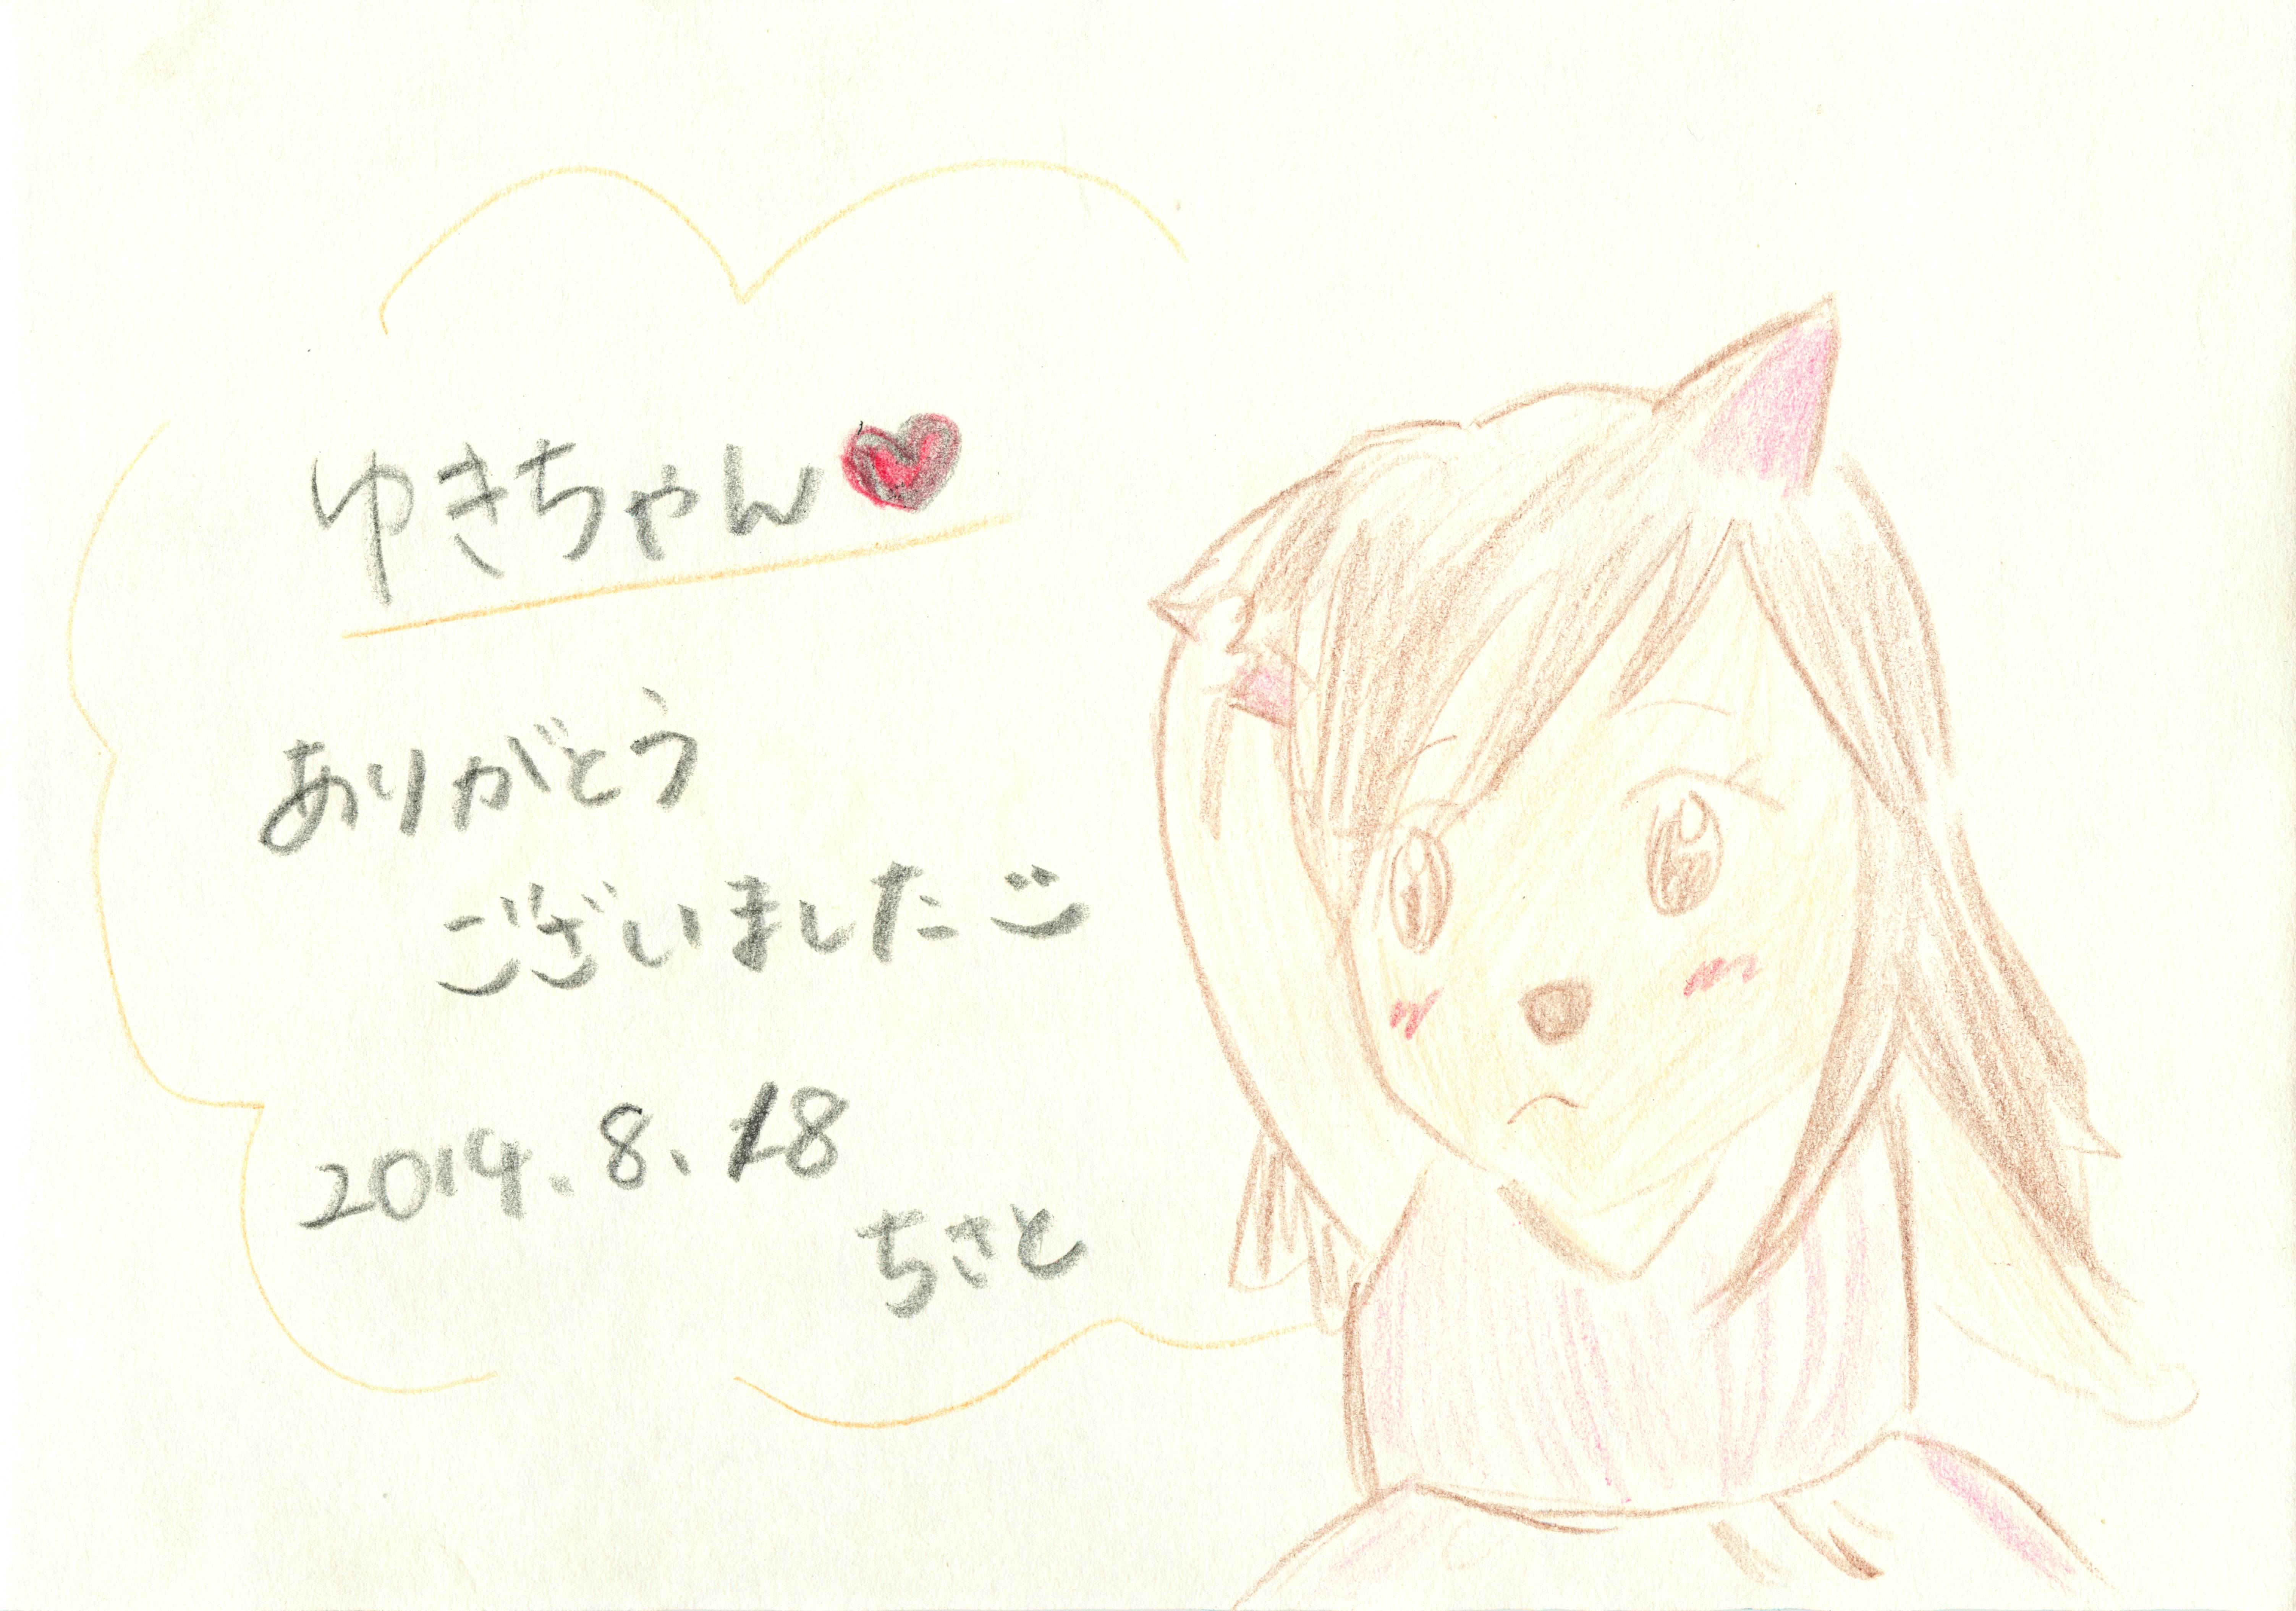 ゆきちゃん♥
ありがとう
ございました
2019.8.18
ちさと